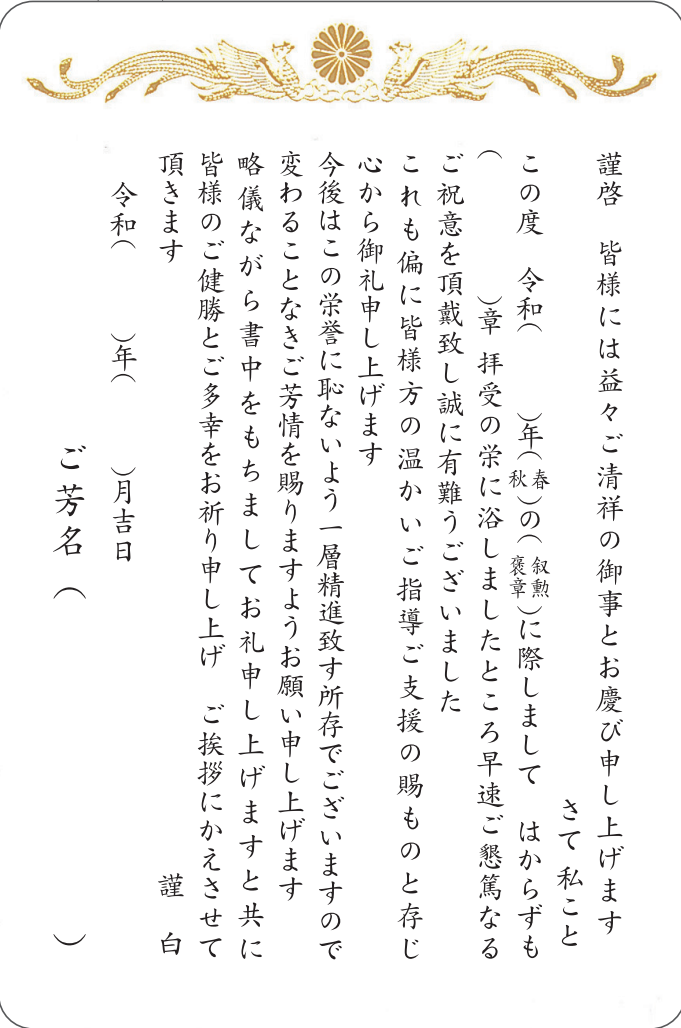 謹啓　皆様には益々ご清祥の御事とお慶び申し上げます
さて私こと
この度　令和（　　）年（春秋）の（叙勲褒章）に際しまして　はからずも
（　　　　）章 拝受の栄に浴しましたところ早速ご懇篤なる
ご祝意を頂戴致し誠に有難うございました
これも偏に皆様方の温かいご指導ご支援の賜ものと存じ
心から御礼申し上げます
今後はこの栄誉に恥ないよう一層精進致す所存でございますので
変わることなきご芳情を賜りますようお願い申し上げます
略儀ながら書中をもちましてお礼申し上げますと共に
皆様のご健勝とご多幸をお祈り申し上げ　ご挨拶にかえさせて
頂きます　　　　謹　白
令和（　　）年（　　）月吉日
ご芳名（　　　　　　　　）